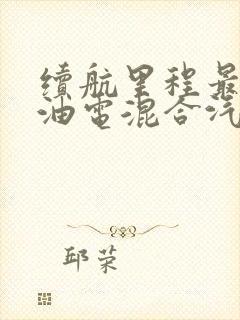 續航里程最
油電混合汽
邱荣